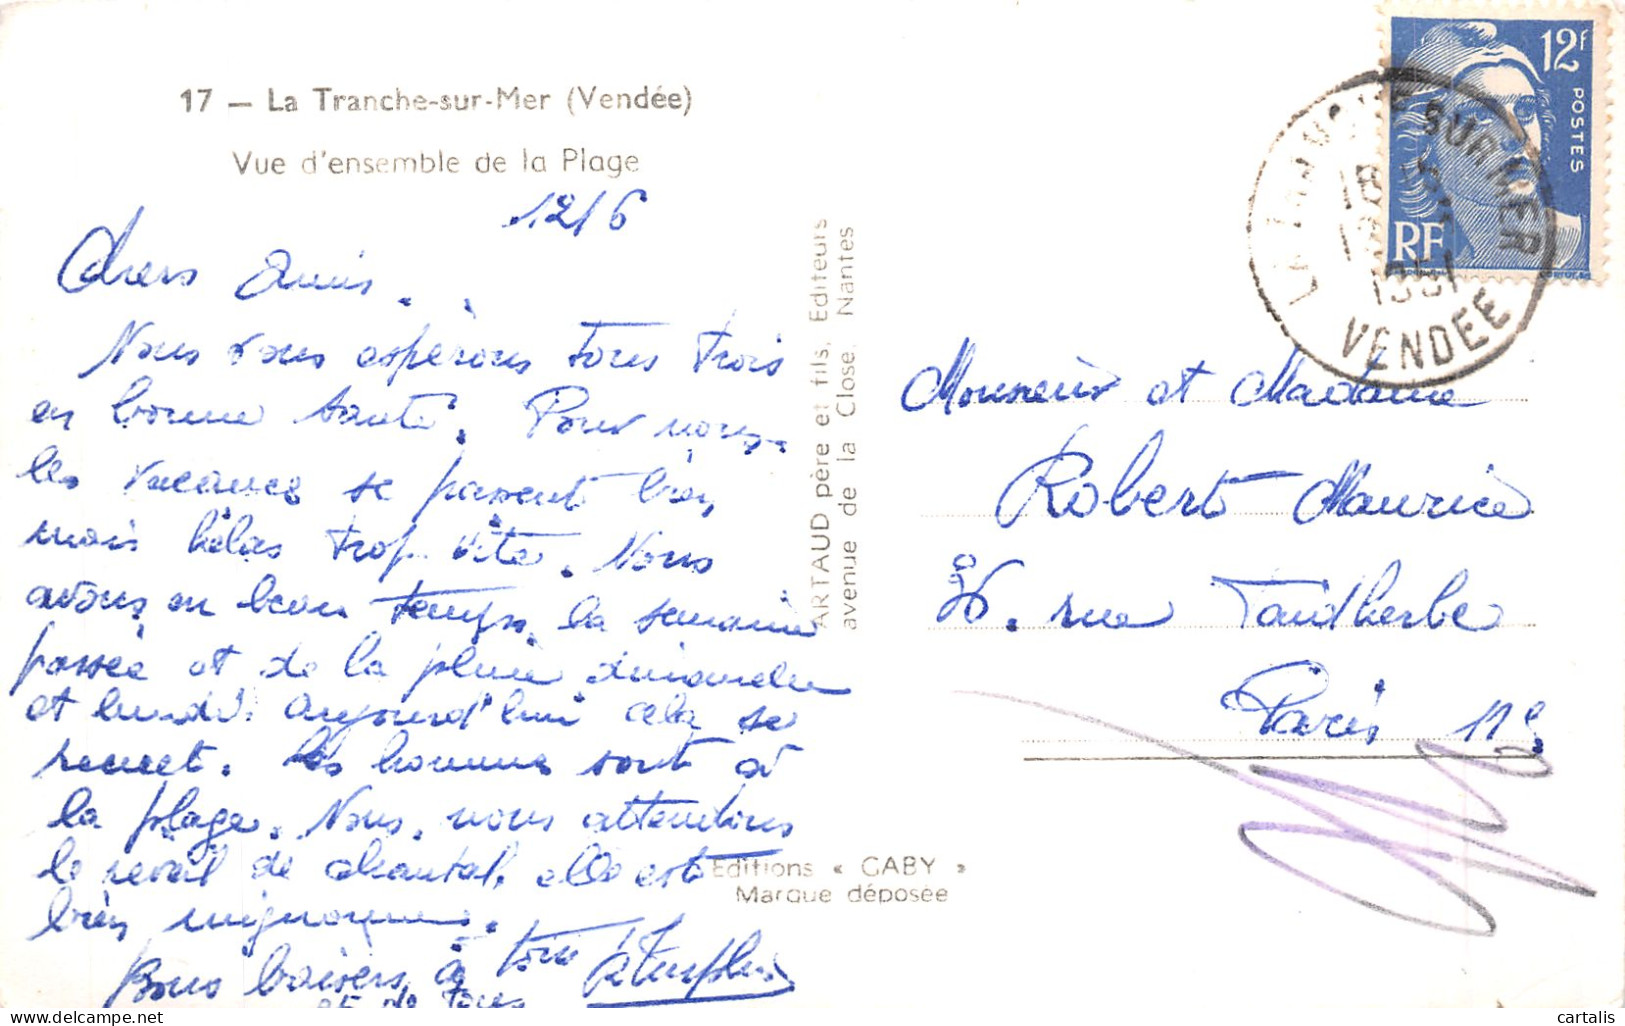 17 — La Tranche-sur-Mer (Vendée)
Vue d'ensemble de la Plage
12/6
Chers Amis.
Nous vous espérons tous trois
en bonne santé. Pour nous
les vacances se passent bien,
mais hélas trop vite. Nous
avons eu beau temps la semaine
passée et de la pluie dimanche
et lundi. Aujourd'hui cela se
remet. Les hommes sont à
la plage. Nous, nous attendons
le réveil de Chantal, elle est
bien mignonne.
Bons baisers à tous
et de tous
ARTAUD père et fils, Editeurs
avenue de la Close, Nantes
Editions « GABY »
Marque déposée
12F
POSTES
RF
LA TRANCHE SUR MER
18
1951
VENDEE
Monsieur et Madame
Robert Maurice
rue Faidherbe
Paris 11e
cartalis
delcampe.net